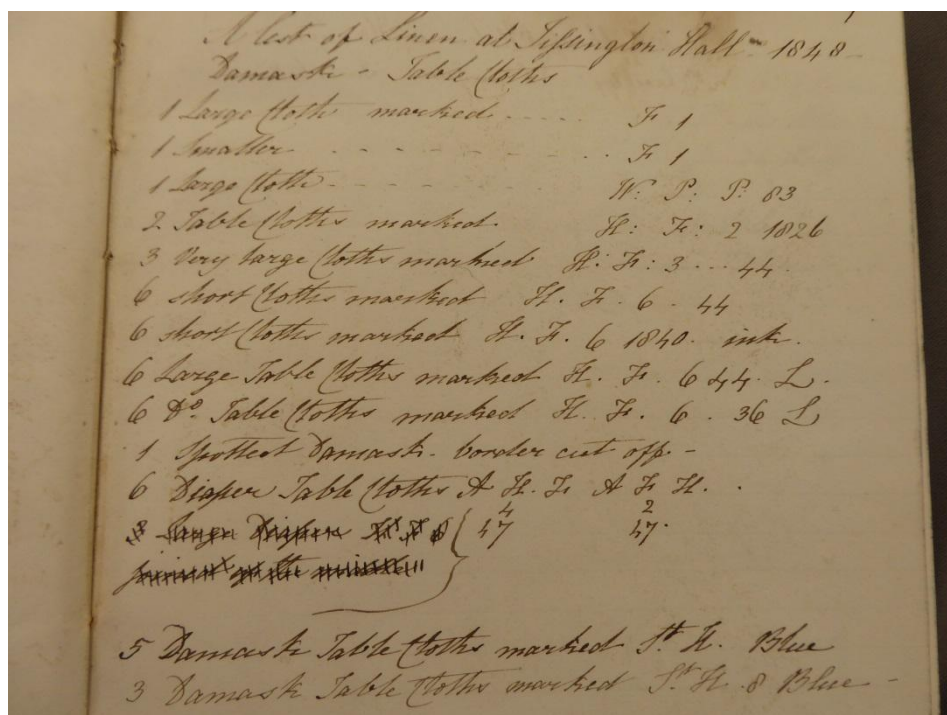 A list of Linen at Tissington Hall - 1848
Damask - Table Cloths
1 Large Cloth marked ..... F 1
1 Smaller - - - - - - - - - . . . F 1
1 Large Cloth - - - - - - W: P: P: 83
2 Table Cloths marked. H: F: 2 1826
3 Very large Cloths marked H: F: 3 ... 44.
6 short Cloths marked H. F. 6 - 44
6 short Cloths marked H. F. 6 1840. ink.
6 Large Table Cloths marked H. F. 6 44. L.
6 Do. Table Cloths marked H. F. 6 . 36 L
1 Spotted Damask - border cut off -
6 Diaper Table Cloths A H. F. A F H. .
4 2
47 47.
5 Damask Table Cloths marked St. H. Blue
3 Damask Table Cloths marked St. H. 8 Blue -